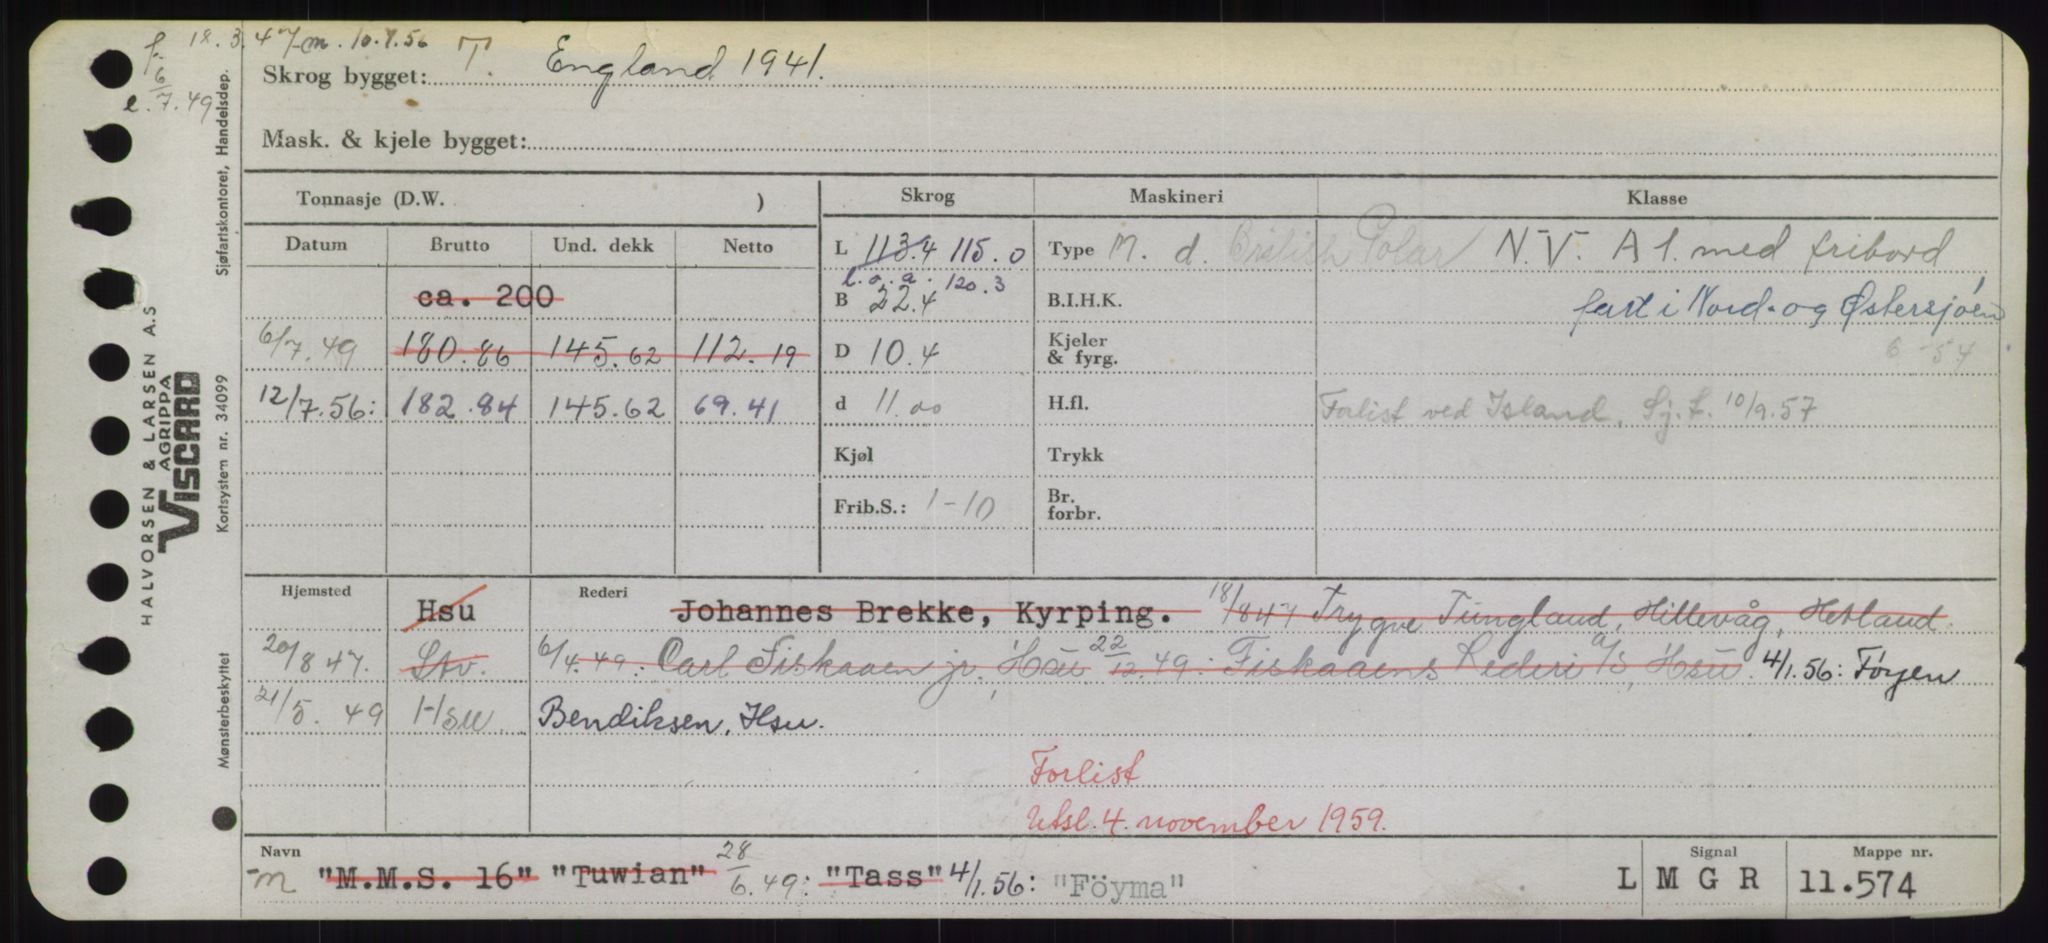 f. 18.3.47 m. 10.7.56
6
e. 7.49
Skrog bygget: T. England 1941.
Mask. & kjele bygget:
Tonnasje (D.W. )
Skrog Maskineri Klasse
Datum Brutto Und. dekk Netto
L 113.4 115.0 Type M. d. British Polar N.V. A 1. med fribord
l.o.a. 120.3
ca. 200 B 22.4 B.I.H.K. fart i Nord- og Østersjøen
6/7.49 180.86 145.62 112.19 D 10.4 Kjeler & fyrg. 6-54
12/7.56: 182.84 145.62 69.41 d 11.00 H.fl. Forlist ved Island. Sj.t. 10/9.57
Kjøl Trykk
Frib.S.: 1-10 Br. forbr.
Hjemsted Hsu Rederi Johannes Brekke, Kyrping. 18/8 47 Trygve Tungland, Hillevåg, Hetland.
20/8 47. Stv. 6/4.49: Carl Fiskaaen jr., Hsu 22/12.49: Fiskaaens Rederi a/s, Hsu. 4/1.56: Føyen
21/5. 49 Hsu. Bendiksen, Hsu.
Forlist
Utsl. 4. november 1959.
Navn Signal Mappe nr.
m "M.M.S. 16" "Tuwian" 28/6.49: "Tass" 4/1.56: "Föyma" L M G R 11.574
HALVORSEN & LARSEN A.S
AGRIPPA
VISCARD
Sjøfartskontoret, Handelsdep.
Kortsystem nr. 34099
Mønsterbeskyttet